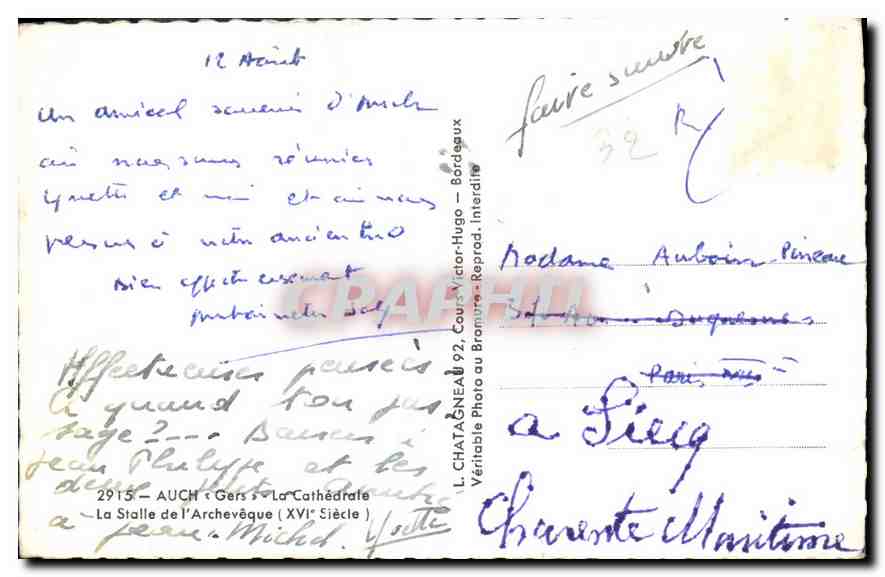 12 Août
Un amical souvenir d'Auch
où nous sommes réunies
Yvette et moi et où nous
pensons à notre ancien trio
Bien affectueusement
Affectueuses pensées
à quand ton pas
sage ? --- Baisers à
Jean Philippe et les
deux
à Jean-Michel. Yvette
2915 — AUCH « Gers » - La Cathédrale
La Stalle de l'Archevêque (XVIe Siècle)
L. CHATAGNEAU 92, Cours Victor-Hugo — Bordeaux
Véritable Photo au Bromure - Reprod. interdite
CPAPHIL
faire suivre
32
Madame Auboin Pineau
Duquesne
Paris
à Fiecq
Charente Maritime